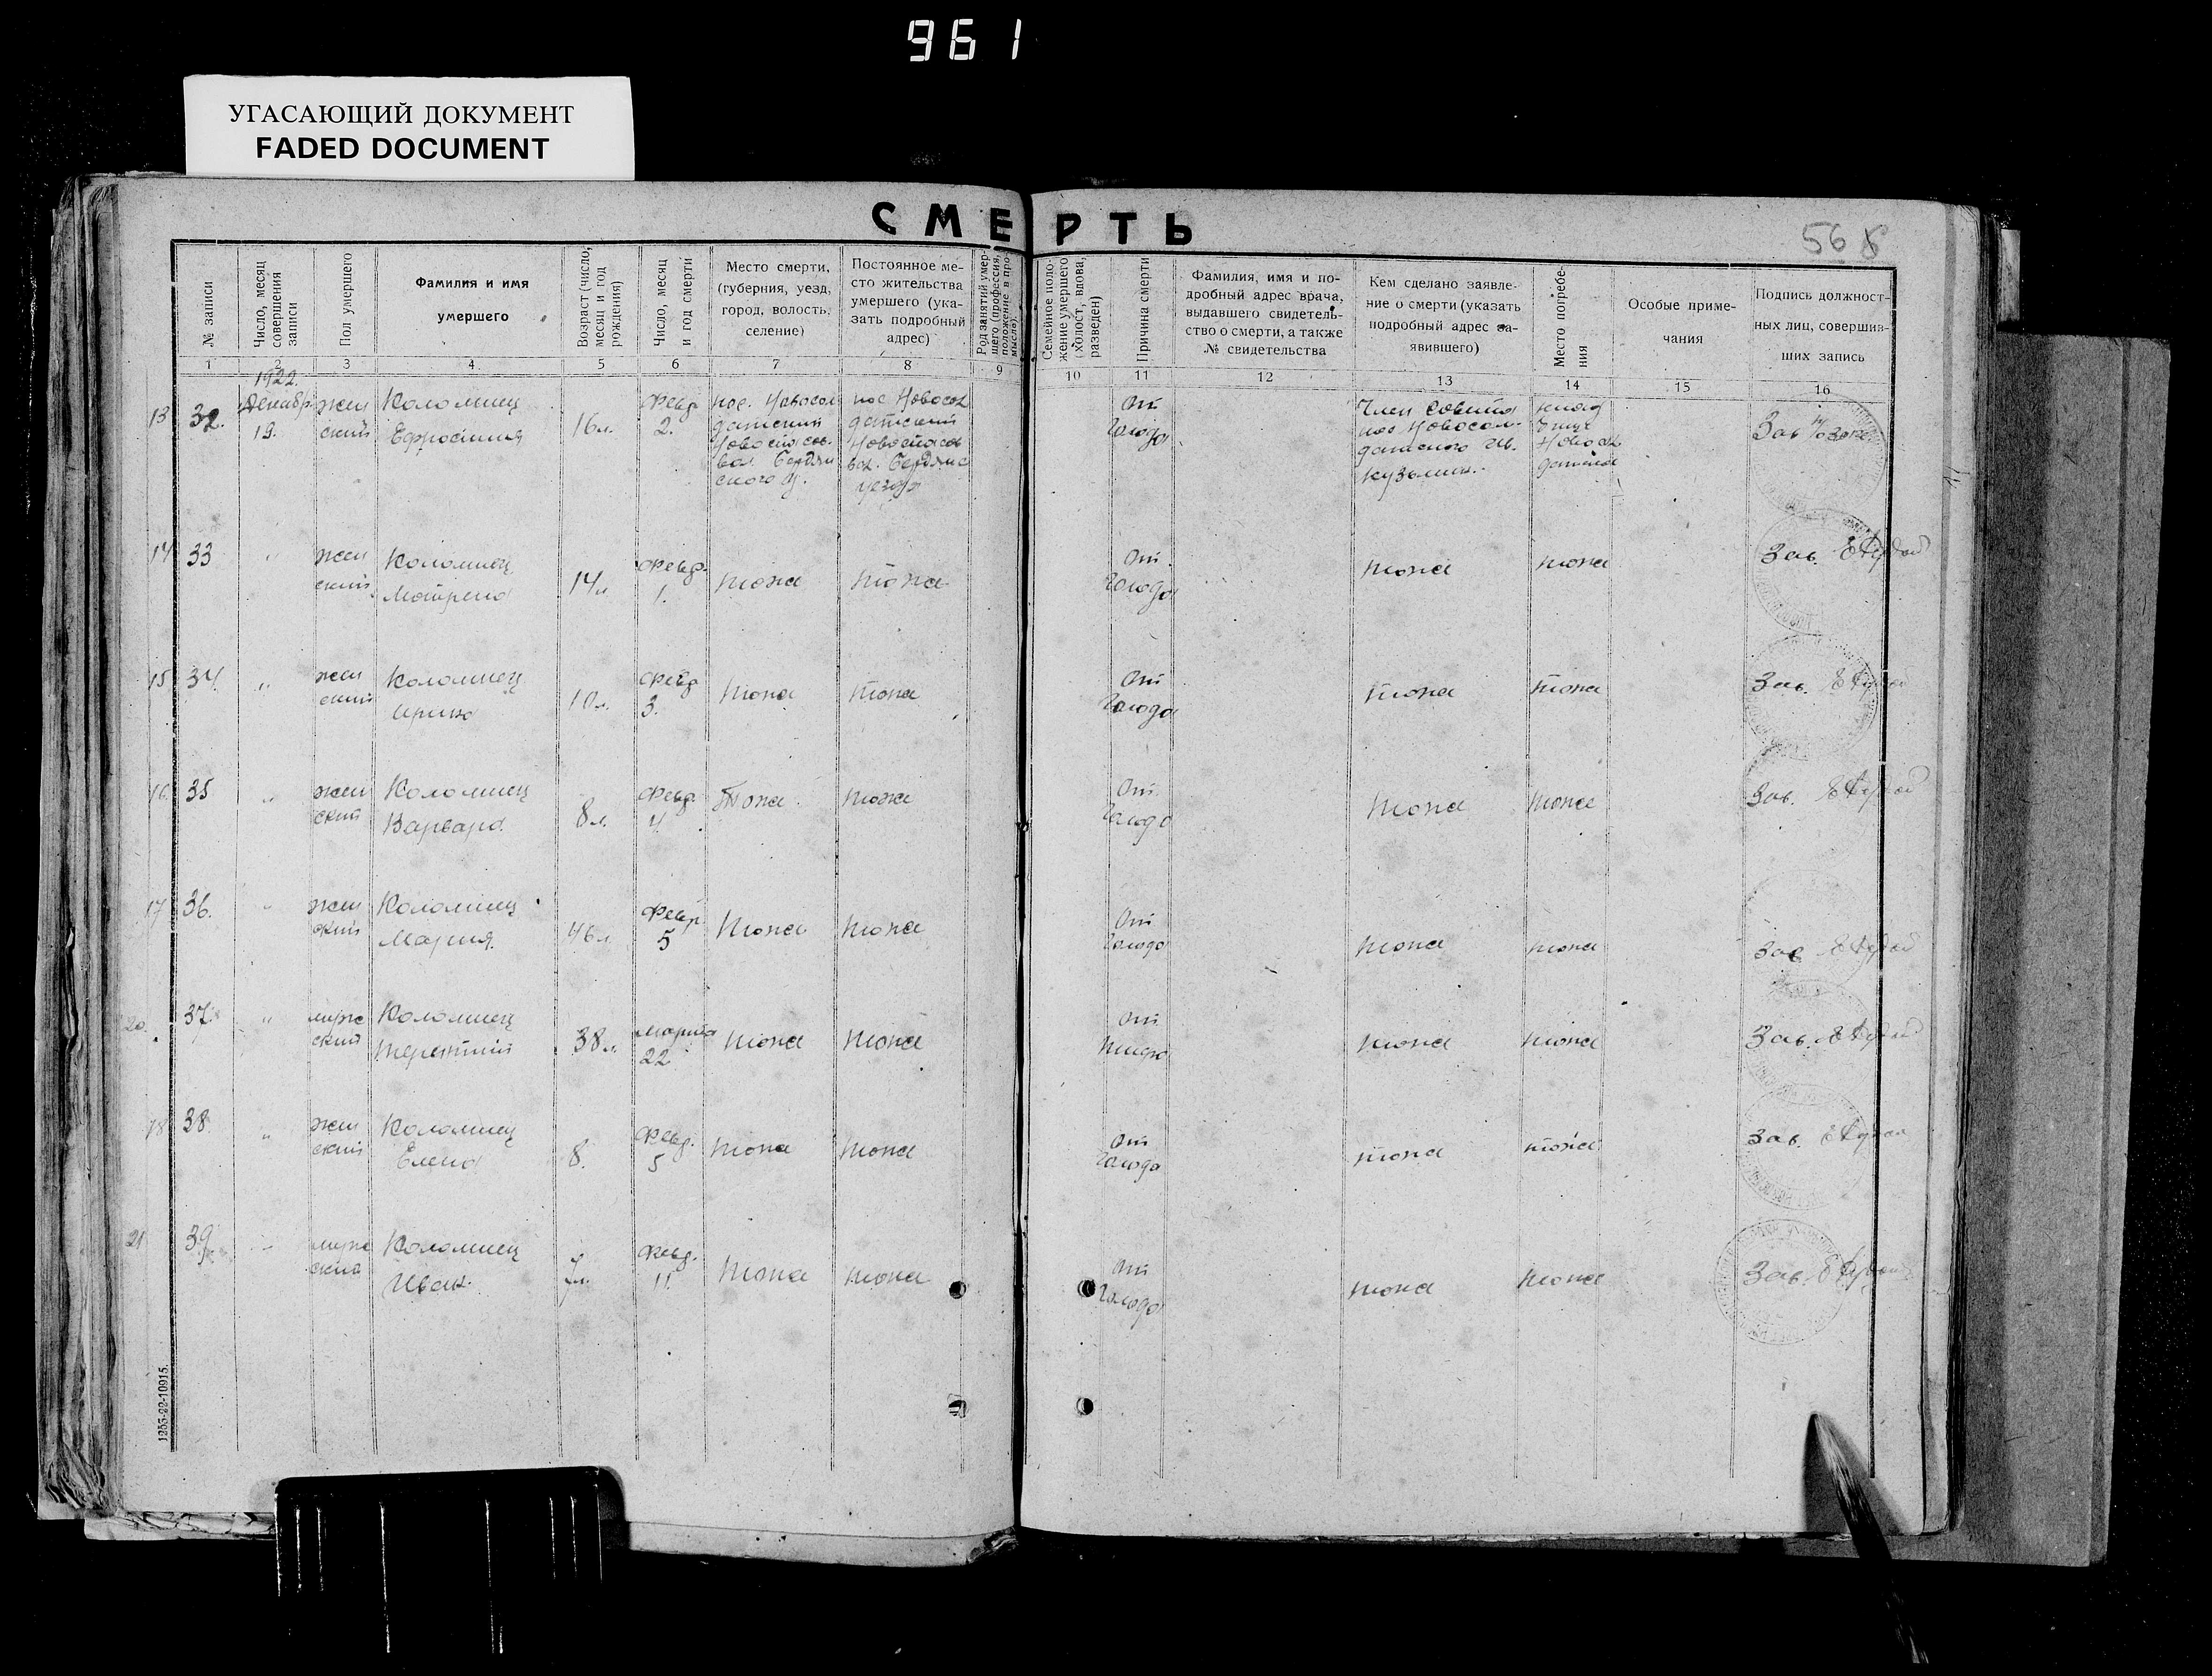 961
УГАСАЮЩИЙ ДОКУМЕНТ
FADED DOCUMENT
СМЕРТЬ
568
№ записи
Число, месяц
совершения
записи
Пол умершего
Фамилия и имя
умершего
Возраст (число,
месяц и год
рождения)
Число, месяц
и год смерти
Место смерти,
(губерния, уезд,
город, волость,
селение)
Постоянное ме-
сто жительства
умершего (ука-
зать подробный
адрес)
Род занятий умер-
шего (профессия,
положение в про-
мысле).
Семейное поло-
жение умершего
(холост, вдова,
разведен)
Причина смерти
Фамилия, имя и по-
дробный адрес врача,
выдавшего свидетель-
ство о смерти, а также
№ свидетельства
Кем сделано заявле-
ние о смерти (указать
подробный адрес за-
явившего)
Место погребе-
ния
Особые приме-
чания
Подпись должност-
ных лиц, совершив-
ших запись
1 2 3 4 5 6 7 8 9 10 11 12 13 14 15 16
1922.
13 32. Декабр. 19.
жен
ский
Коломиец
Ефросиния
16 л.
Февр.
2.
пос. Новосол
датский
Новоспасов.
вол. Бердян
ского у.
пос Новосол
датский
Новоспасов
вол. Бердянс
уезда
От
Голода
Член Совета
пос Новосол-
датского Ив.
Кузьмин.
Новосол
Зав.
14 33 "
жен
ский
Коломиец
Матрена
14 л.
Февр.
1.
тоже тоже
От
Голода
тоже тоже Зав.
15 34. "
жен
ский
Коломиец
Ирина
10 л.
Февр
3.
тоже тоже
От
Голода
тоже тоже Зав.
16. 35 "
жен
ский
Коломиец
Варвара
8 л.
Февр.
4.
Тоже тоже
От
Голода
тоже тоже Зав.
17 36. "
жен
ский
Коломиец
Мария.
46 л.
Февр.
5
тоже тоже
От
Голода
тоже тоже Зав.
20. 37. "
муже
ский
Коломиец
Терентий
38 л.
Марта
22
тоже тоже
От
тоже тоже Зав.
18 38 "
жен
ский
Коломиец
Елена
8.
Февр.
5
тоже тоже
От
Голода
тоже тоже Зав.
21 39. "
муже
ский
Коломиец
Иван.
7 л.
Февр.
11.
тоже тоже
От
Голода
тоже тоже Зав.
1253-22-10915.